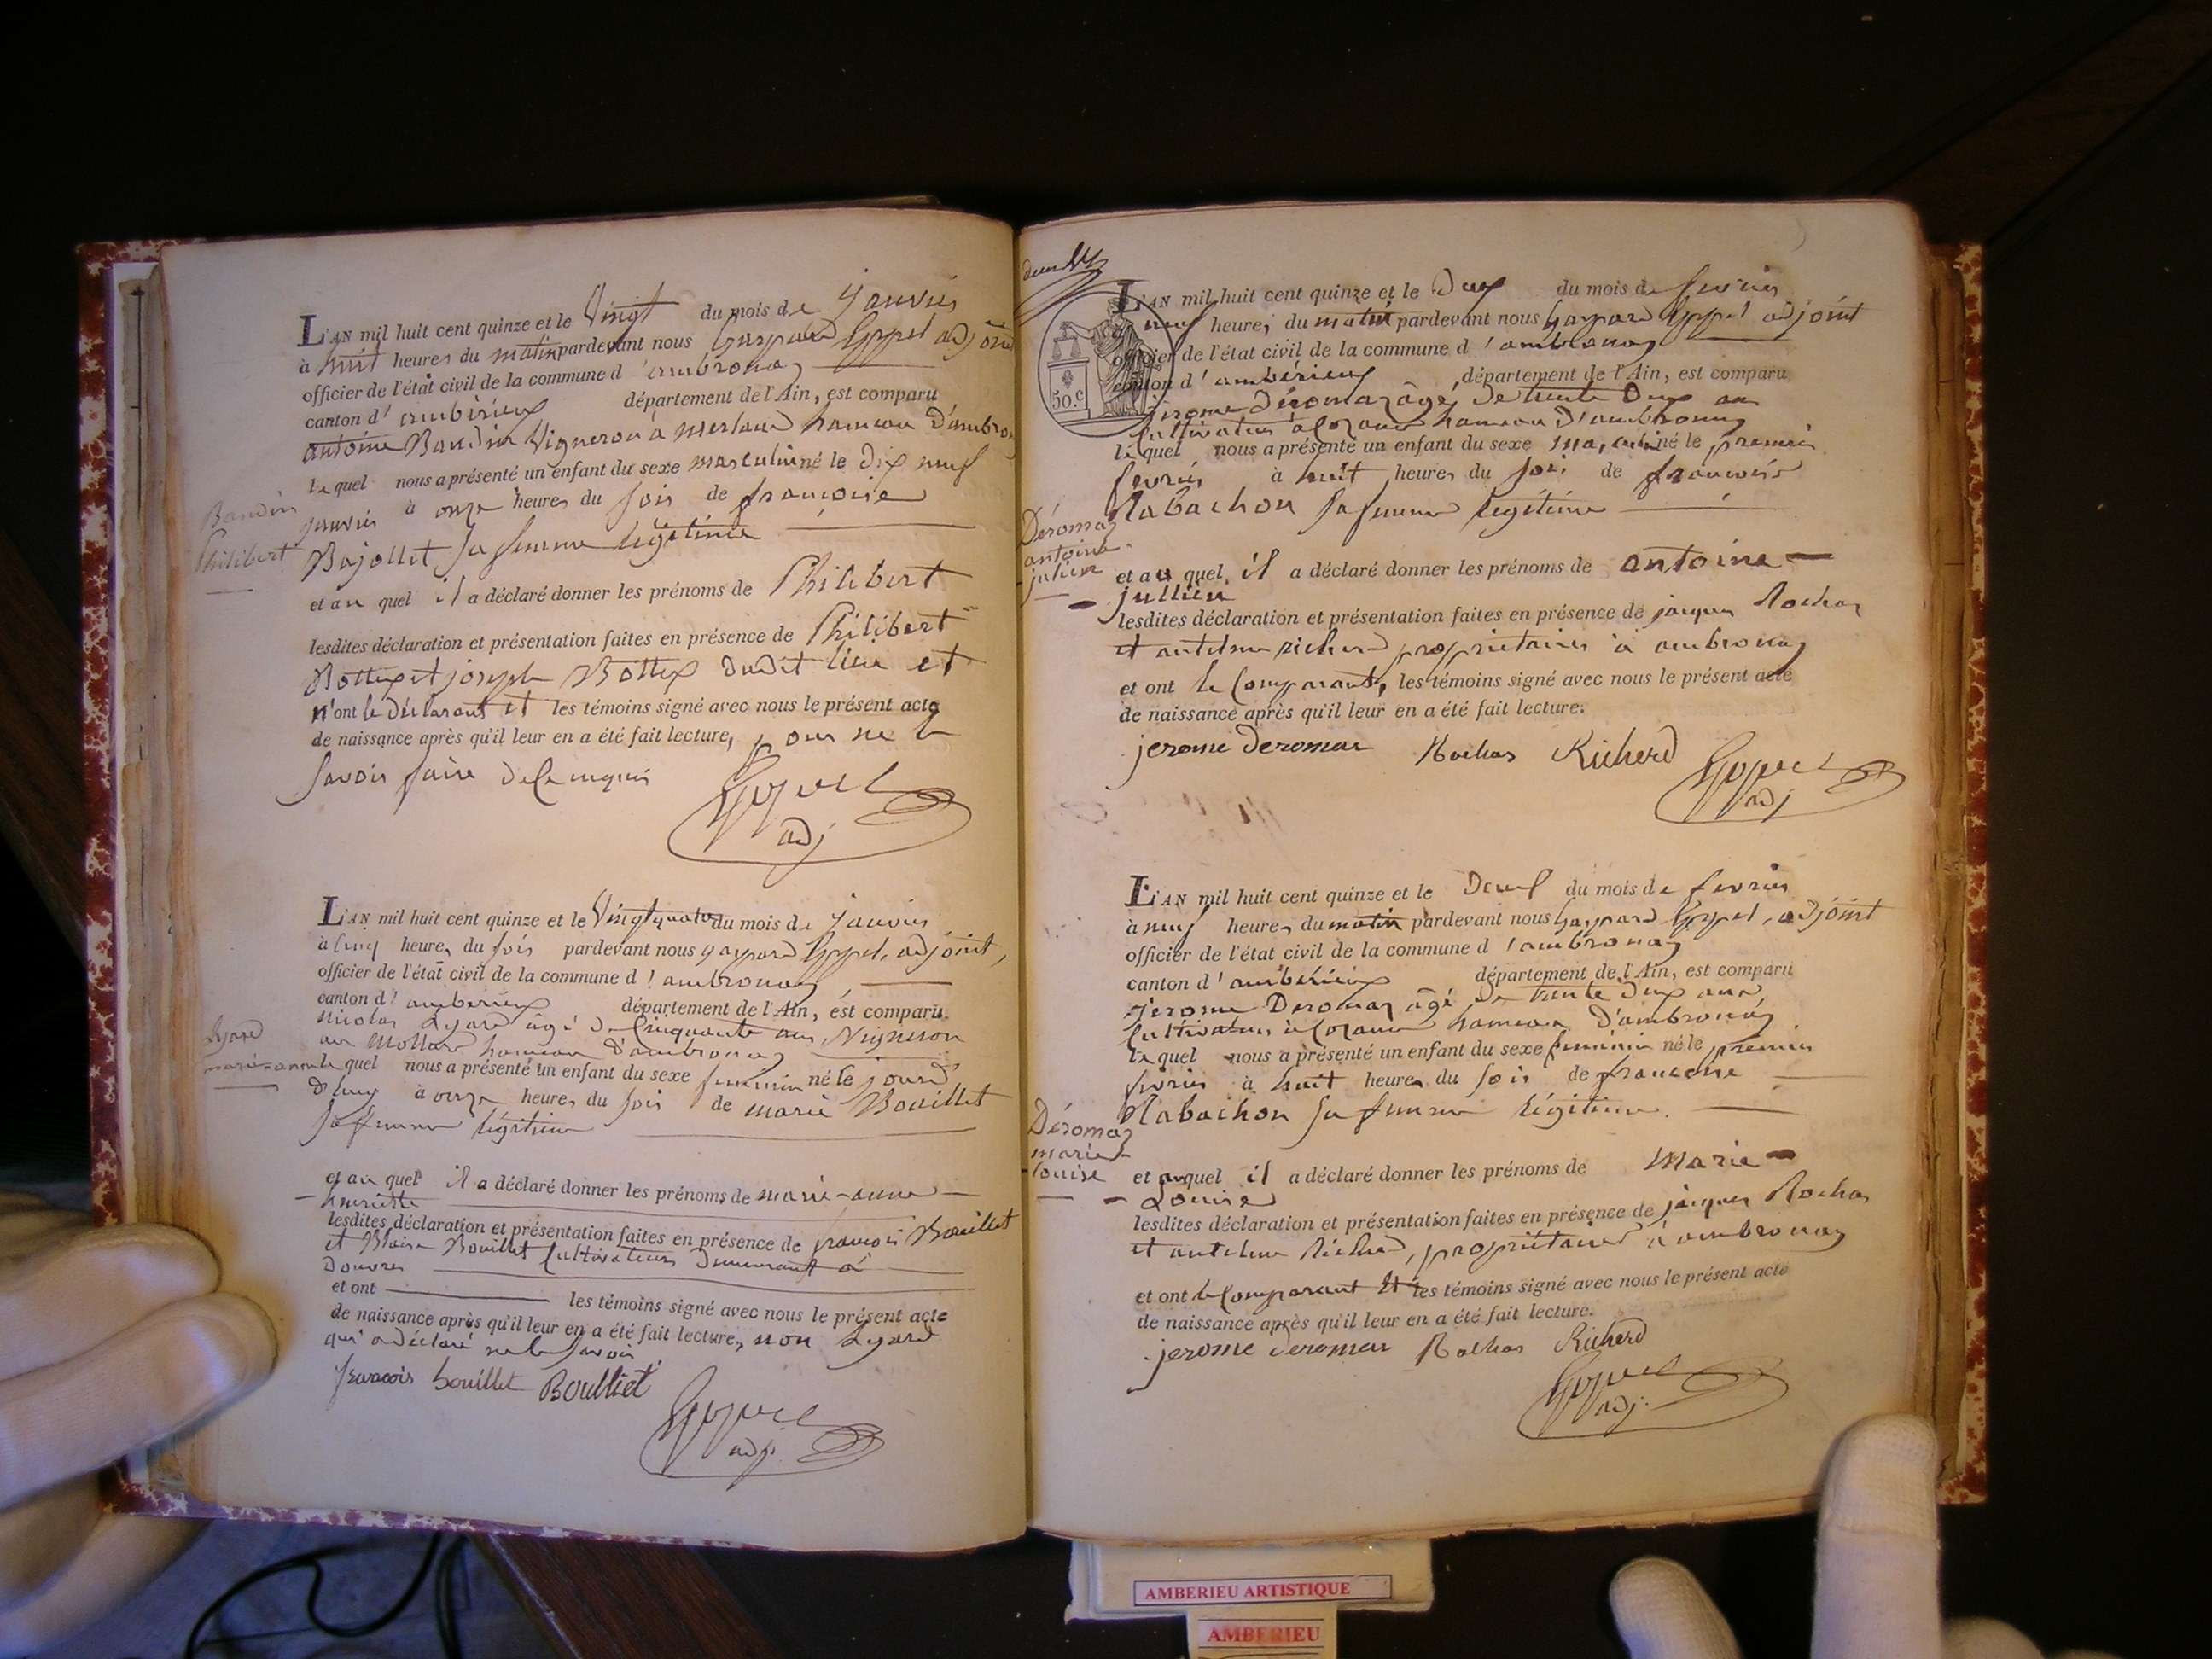 L'AN mil huit cent quinze et le Vingt du mois de Janvier
à huit heures du matin pardevant nous Gaspard Eppel adjoint
officier de l'état civil de la commune d'ambronay
canton d'ambérieux département de l'Ain, est comparu
antoine Baudin Vigneron à merland hameau D'ambronay
lequel nous a présenté un enfant du sexe masculin né le Dix neuf
Baudin
Philibert
janvier à onze heures du soir de françoise
Bajollet sa femme légitime
et au quel il a déclaré donner les prénoms de Philibert
lesdites déclaration et présentation faites en présence de Philibert
Bottex et joseph Bottex dudit lieu et
n'ont le déclarant et les témoins signé avec nous le présent acte
de naissance après qu'il leur en a été fait lecture, pour ne le
savoir faire de ce enquis
adj
L'AN mil huit cent quinze et le Vingt quatre du mois de janvier
à cinq heures du soir pardevant nous gaspard Eppel, adjoint,
officier de l'état civil de la commune d'ambronay
canton d'amberieux département de l'Ain, est comparu
nicolas Lyard âgé de Cinquante ans Vigneron
au Mollard hameau D'ambronay
Lyard
marie-anne
lequel nous a présenté un enfant du sexe feminin né le jourd
D'huy à onze heures du soir de marie Bouillet
sa femme légitime
et au quel il a déclaré donner les prénoms de marie-anne -
- henriette
lesdites déclaration et présentation faites en présence de francois Bouillet
et Blaise Bouillet Cultivateurs Demeurant à
Douvres
et ont les témoins signé avec nous le présent acte
de naissance après qu'il leur en a été fait lecture, non Lyard
qui a déclaré ne le savoir
francois bouillet Boulliet
adj.
L'AN mil huit cent quinze et le Deux du mois de fevrier
neuf heures du matin pardevant nous Gaspard Eppel adjoint
officier de l'état civil de la commune d'ambronay
canton d'ambérieux département de l'Ain, est comparu
50.C
jerome Déromaz âgé, De trente Deux ans
Cultivateur à Cozance hameau d'ambronay
lequel nous a présenté un enfant du sexe masculin né le premier
fevrier à huit heures du soir de francoise
Rabachon sa femme légitime
Déromaz
antoine-
julien
et au quel il a déclaré donner les prénoms de antoine -
- jullien
lesdites déclaration et présentation faites en présence de jacques Rochas
et antelme richerd propriétaires à ambronay
et ont le Comparant, les témoins signé avec nous le présent acte
de naissance après qu'il leur en a été fait lecture.
jerome deromar Rochas Richerd
adj
L'AN mil huit cent quinze et le Deux du mois de fevrier
à neuf heures du matin pardevant nous Gaspard Eppel, adjoint
officier de l'état civil de la commune d'ambronay
canton d'ambérieux département de l'Ain, est comparu
Jerome Deromaz âgé de trente deux ans
Cultivateur à Cozance hameau D'ambronay
lequel nous a présenté un enfant du sexe feminin né le premier
fevrier à huit heures du soir de francoise
Rabachon sa femme légitime.
Déromaz
marie-
louise
et au quel il a déclaré donner les prénoms de Marie -
- Louise
lesdites déclaration et présentation faites en présence de jacques Rochas
et antelme Richerd, propriétaires à ambronay
et ont le Comparant et les témoins signé avec nous le présent acte
de naissance après qu'il leur en a été fait lecture.
jerome deromar Rochas Richerd
adj.
AMBERIEU ARTISTIQUE
AMBERIEU